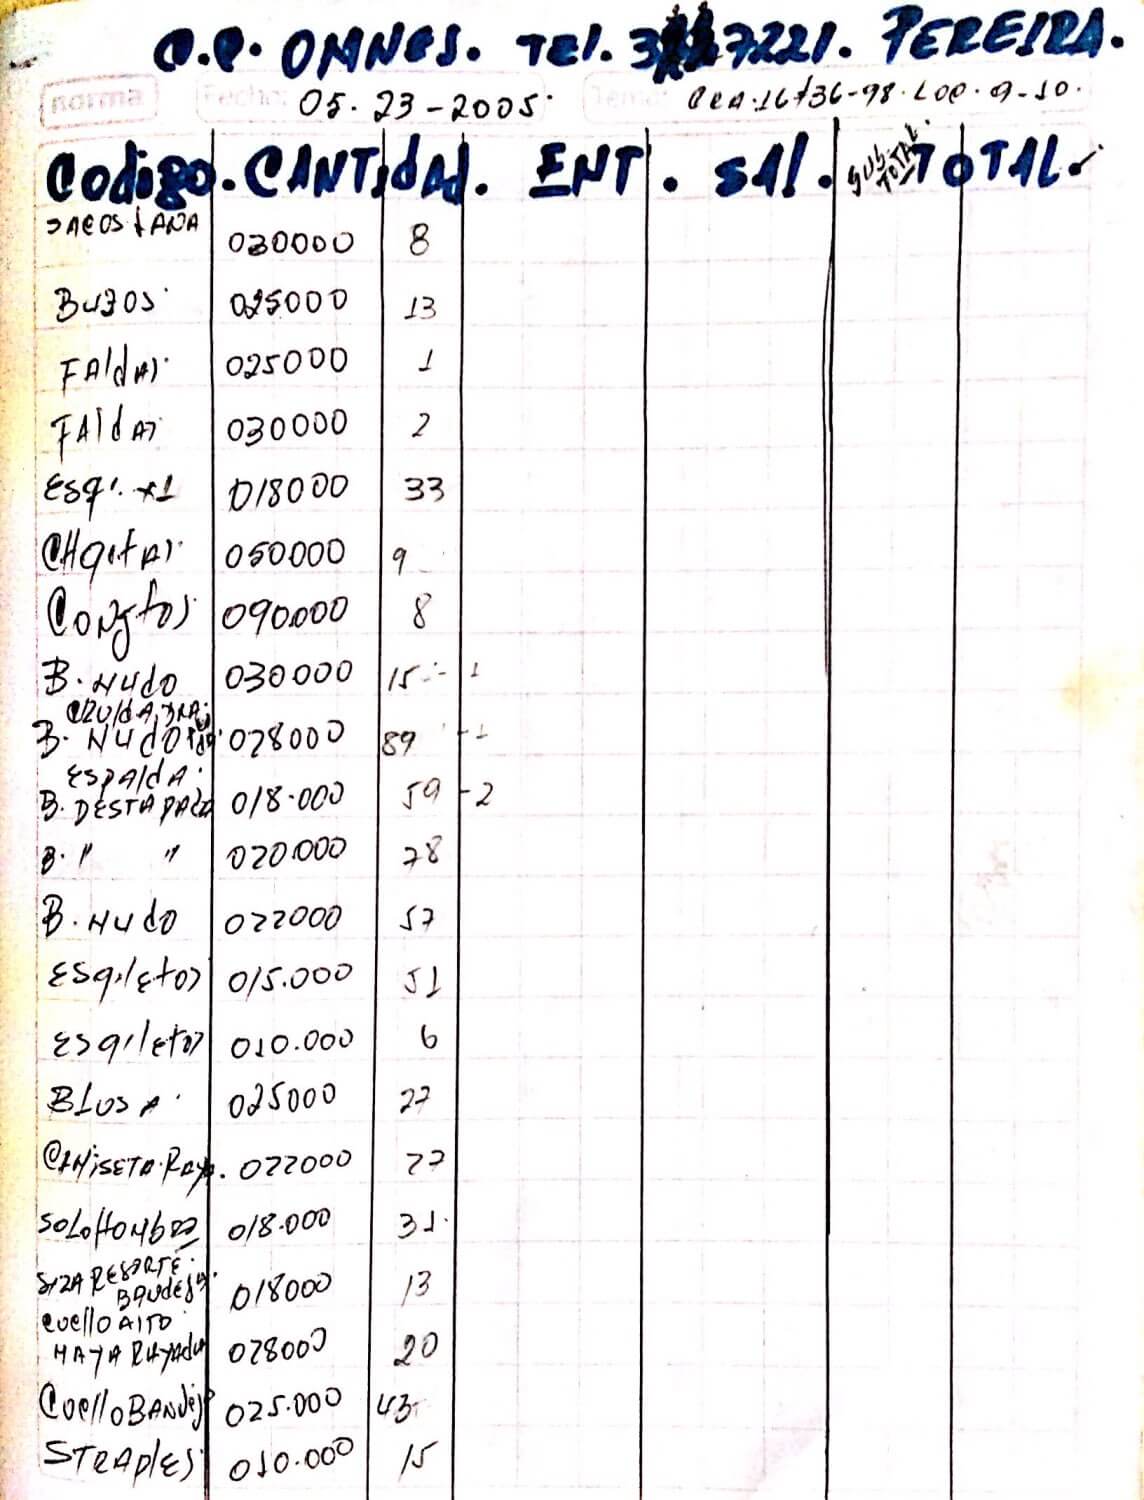 C.C. OMNES. TEL. 3 7221. PEREIRA.
norma Fecha: 05.23-2005. Tema: CRA.16 #36-98.LOC.9-10.
Codigo. CANTIdAd. ENT. SAl. SUB TOTAL. TOTAL.
SACOS LANA 030000 8
BUZOS 025000 13
FAldAS 025000 1
FAldAS 030000 2
ESQ'. x1 018000 33
CHQitAS 050000 9
CONJtos 090000 8
B. NUdO 030000 15 - 1
B. NUDO 028000 89 - 1
ESPAldA.
B. DESTAPADA 018.000 59 - 2
B. " " 020.000 28
B. NUdO 022000 57
ESQilEtOS 015.000 51
ESQilEtOS 010.000 6
BLUSA. 025000 27
CAMiSETA.RAYA. 022000 27
SOLO HOMbRO 018.000 31.
SIZA RESORTE.
BANDEJA. 018000 13
CUEllO AlTO
MAYA RAYAdA 028000 20
CUEllO BANdEJA 025.000 43
STRAPlES 010.000 15